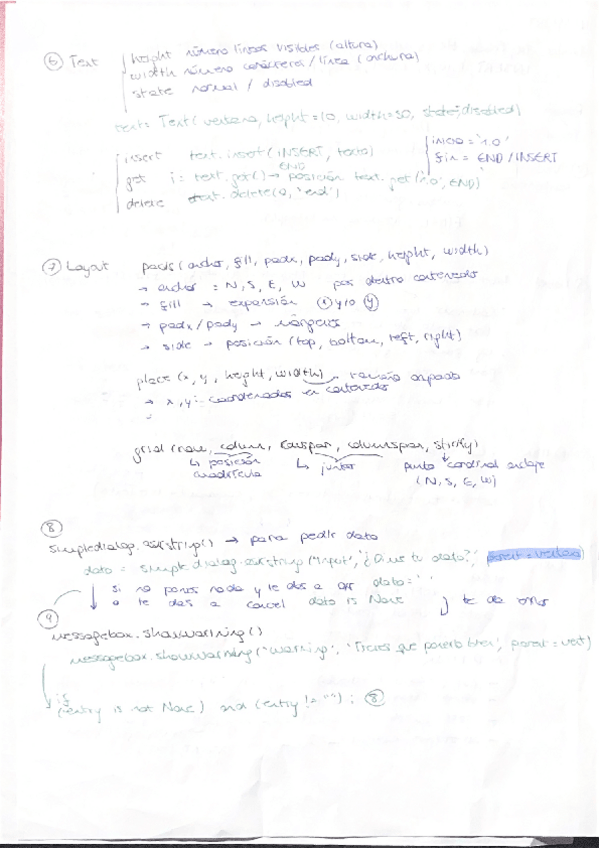 ⑥ Text height número líneas visibles (altura)
width número caracteres / línea (anchura)
state normal / disabled
text = Text (ventana, height = 10, width = 30, state = disabled)
insert text.insert (INSERT, texto)
END
get i = text.get() → posición text.get('1.0', END)
delete text.delete(0, 'end')
inicio = '1.0'
fin = END / INSERT
⑦ Layout pack (anchor, fill, padx, pady, side, height, width)
→ anchor = N, S, E, W pos dentro contenedor
→ fill → expansión ⓧ y/o ⓨ
→ padx / pady → márgenes
→ side → posición (top, bottom, left, right)
place (x, y, height, width) → tamaño ocupado
→ x, y: coordenadas en contenedor
grid (row, column, rowspan, columnspan, sticky)
↳ posición cuadrícula
↳ juntar
punto cardinal anclaje
(N, S, E, W)
⑧
simpledialog.askstring() → para pedir dato
dato = simpledialog.askstring("Input", '¿Dime tu dato?', parent = ventana)
si no pones nada y le das a OK dato = ' '
o le das a cancel dato is None te da error
⑨
messagebox.showwarning()
messagebox.showwarning("Warning", 'Tienes que ponerlo bien', parent = vent)
if
(entry is not None) and (entry != "") : ⑧